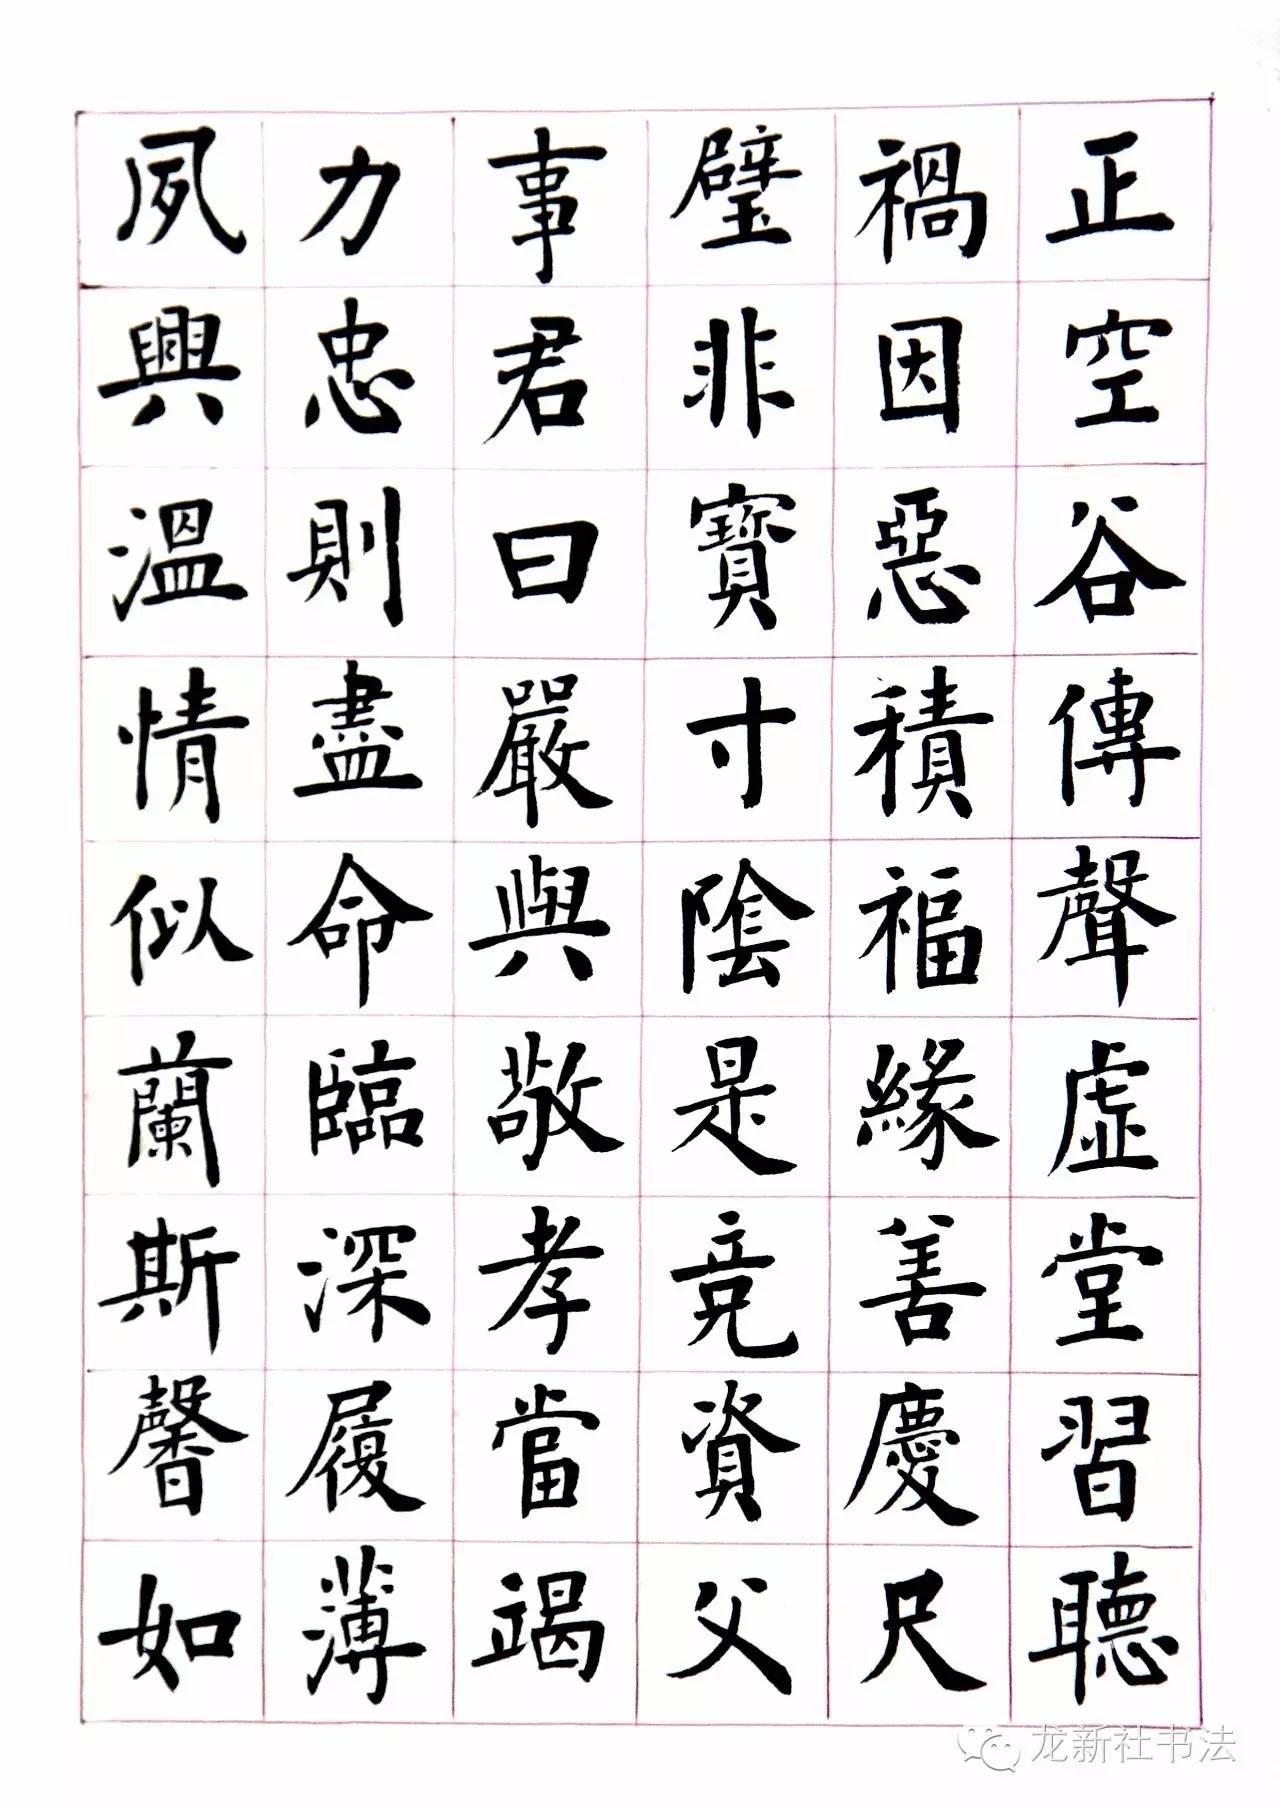 正空谷傳聲虛堂習聽
禍因惡積福緣善慶尺
璧非寶寸陰是競資父
事君曰嚴與敬孝當竭
力忠則盡命臨深履薄
夙興溫情似蘭斯馨如
龙新社书法